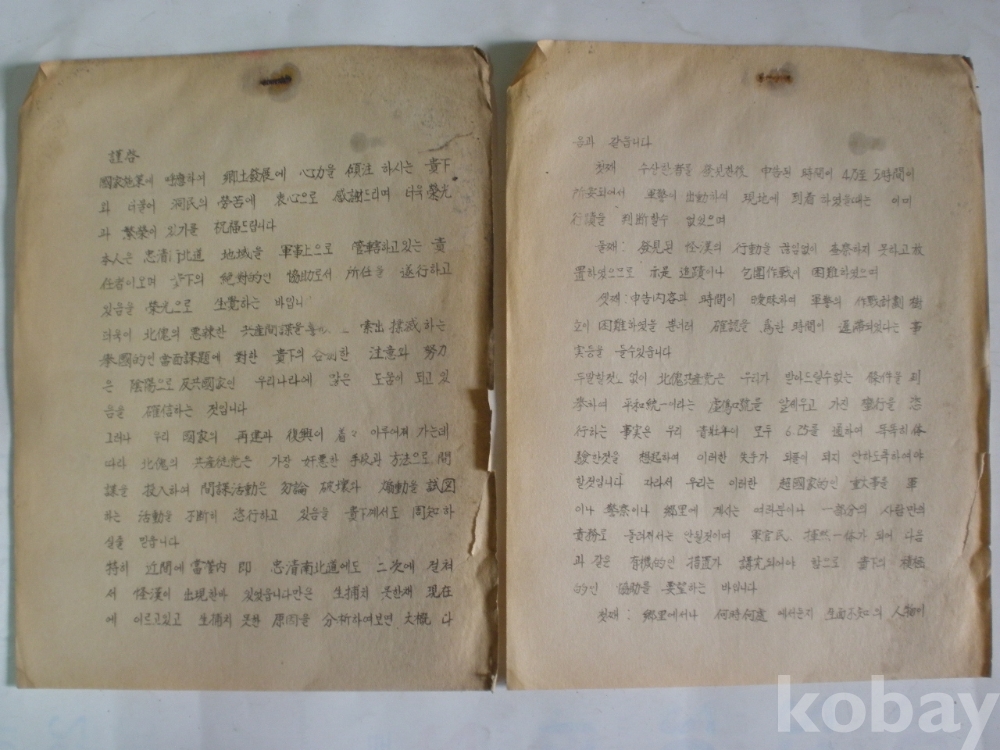 謹啓
國家施策에 呼應하여 鄕土發展에 心功을 傾注 하시는 貴下
와 더불어 洞民의 勞苦에 衷心으로 感謝드리며 더욱 榮光
과 繁榮이 있기를 祝福드립니다
本人은 忠清北道 地域을 軍事上으로 管轄하고있는 責
任者이오며 貴下의 絶對的인 協助로서 所任을 遂行하고
있음을 榮光으로 生覺하는 바입니
더욱이 北傀의 惡辣한 共産間諜을 索出 撲滅하는
擧國的인 當面課題에 對한 貴下의 注意와 努力
은 陰陽으로 反共國家인 우리나라에 많은 도움이 되고 있
음을 確信하는 것입니다
그러나 우리 國家의 再建과 復興이 着々 이루어져 가는데
따라 北傀의 共産徒党은 가장 奸悪한 手段과 方法으로 間
諜을 投入하여 間諜活動은 勿論 破壞와 煽動을 試図
하는 活動을 不斷히 恣行하고 있음을 貴下께서도 周知하
실줄 믿읍니다
特히 近間에 當管内 即 忠清南北道에도 二次에 걸쳐
서 怪漢이 出現한바 있었읍니다만은 生捕치 못한채 現在
에 이르고있고 生捕치 못한 原因을 分析하여보면 大槪 다
음과 같읍니다
첫째 수산한者를 發見한後 申告된 時間이 4乃至 5時間이
所要되여서 軍警이 出動하여 現地에 到着하였을때는 이미
行蹟을 判断할수 없었으며
둘째: 發見된 怪漢의 行動을 끊임없이 監察하지 못하고 放
置하였으므로 亦是 追蹟이나 包圍作戰이 困難하였으며
셋째:申告内容과 時間이 曖昧하여 軍警의 作戰計劃 樹
立이 困難하였을 뿐더러 確認을 爲한 時間이 遲滯되었다는 事
實등을 들수있읍니다
두말할것도 없이 北傀共産党은 우리가 받아드릴수없는 條件을 列
擧하여 平和統一이라는 虛僞口號를 앞세우고 가진 蠻行을 恣
行하는 事実은 우리 青壮年이 모두 6.25를 通하여 톡톡히 体
驗한것을 想起하여 이러한 失手가 되풀이 되지 안하도록하여야
할것입니다 따라서 우리는 이러한 超國家的인 重大事를 軍
이나 警察이나 鄕里에 계시는 여러분이나 一部分의 사람만의
責務로 돌려서는 안될것이며 軍官民 渾然一体가 되어 다음
과 같은 有機的인 措置가 講究되어야 함으로 貴下의 積極
的인 協助를 要望하는 바입니다
첫째: 鄕里에서나 何時何處에서든지 生面不知의 人物이
kobay